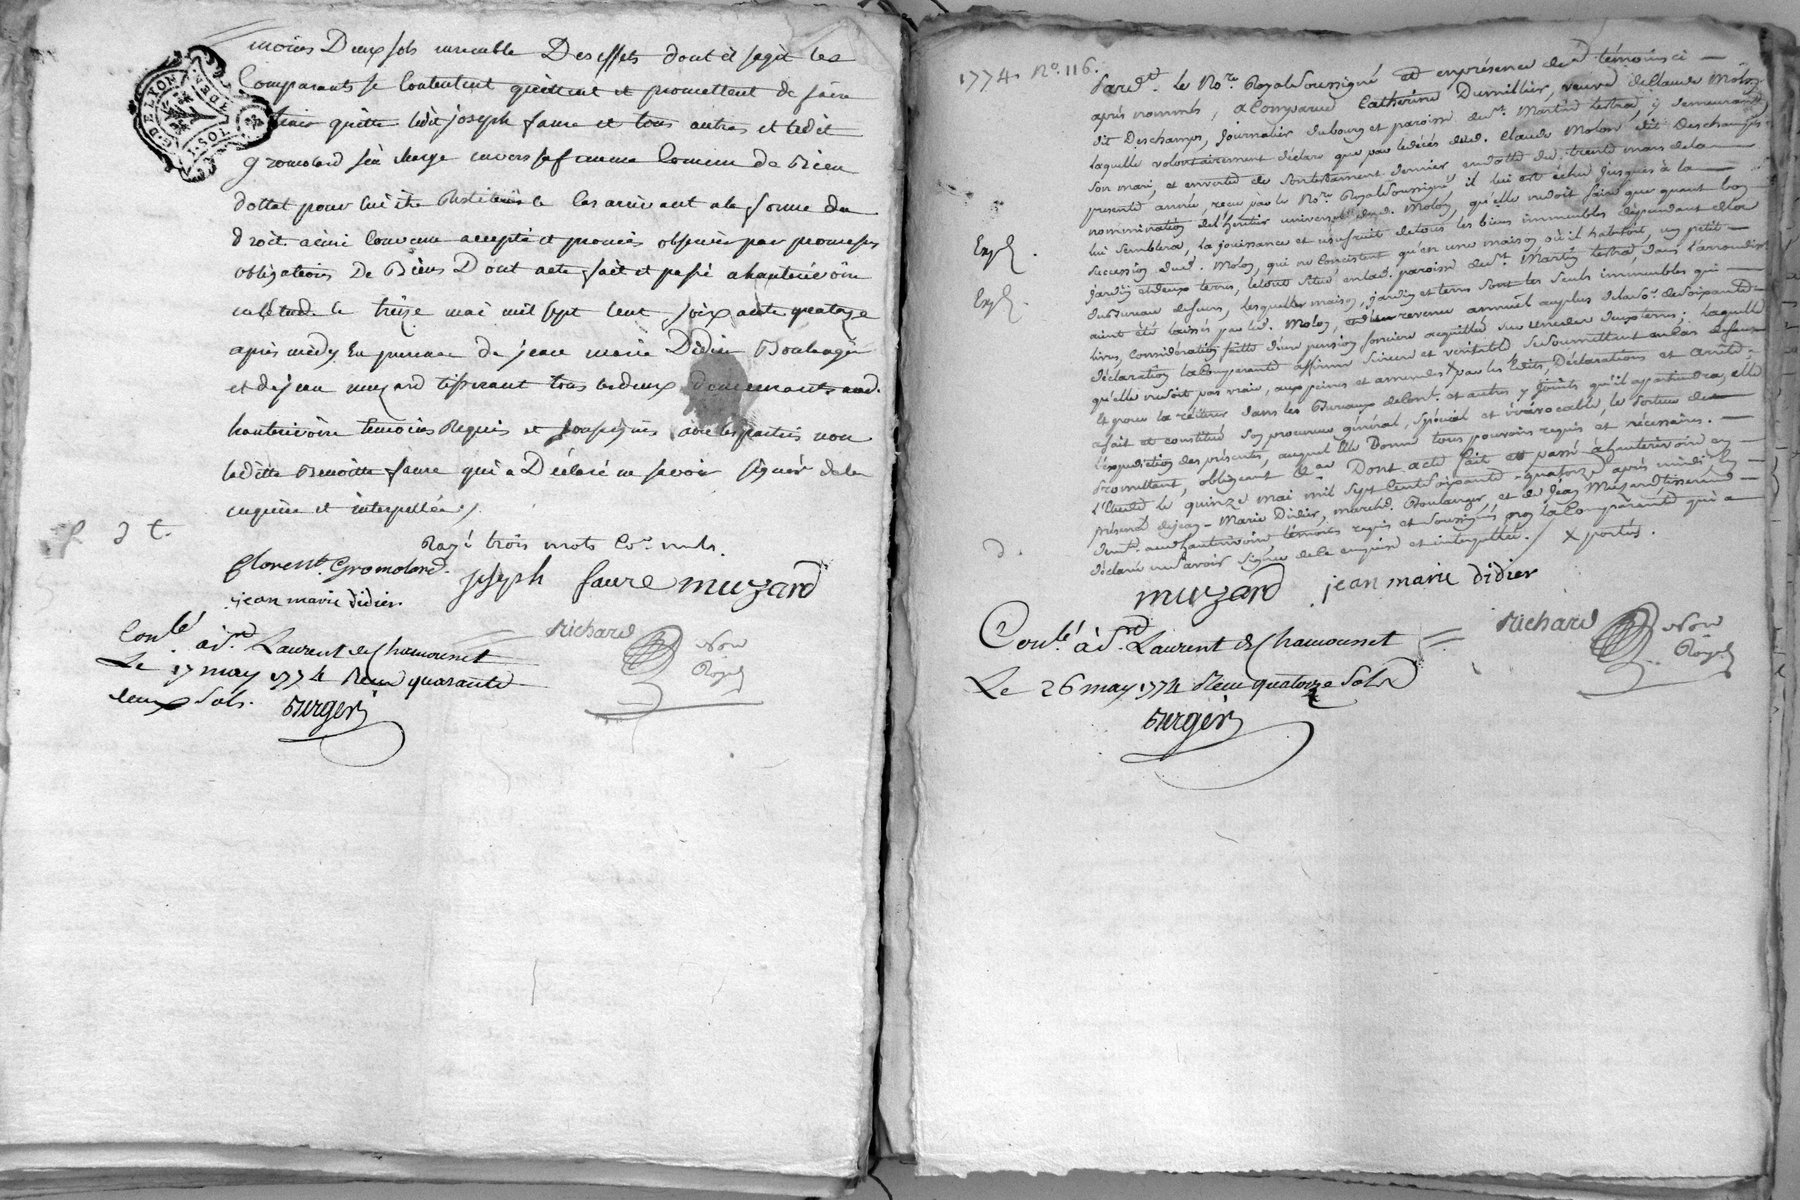 G. DE LYON
1. SOL
DEN.
moins Deux sols ensemble Des effets dont il sagit les
Comparants se Contentent quittent et promettent de faire
tenir quitte ledit joseph faure et tous autres et ledit
gromolard sen charge envers sa femme Comme de bien
dottal pour lui être Restitués le Cas arrivant a la forme du
droit ainsi Convenu accepté et promis observer par promesses
obligations De Biens Dont acte fait et passé a hauterivoire
en létude le treize mai mil sept Cent soixante quatorze
après midy En presence de jean marie Didier Boulanger
et de jean muzard tisserant tous les deux demeurants aud.
hauterivoire temoins Requis et soussignés avec les parties non
ladite Benoitte faure qui a Déclaré ne savoir signer de ce
enquise et interpellée /.
Rayé trois mots Co.e nuls.
florent Gromolard. joseph faure muzard
jean marie didier.
Richard Nore Royal
Conlé à St. Laurent de Chamousset
Le 17 may 1774 Reçu quarante
deux sols. Burger
1774. No. 116.
Pardt. le Nore. Royal Soussigné et en présence des témoins ci
après nommés, a Comparu Catherine Dumillier, veuve de Claude Molon
dit Deschamps, Journalier du bourg et paroisse de St. Martin lestra, y demeurant,
laquelle volontairement déclare que par le décès dud. Claude Molon dit Deschamps
son mari, et en vertu de son testament dernier en datte du trente mars de la
presente année, reçu par le Nore. Royal Soussigné, il lui est échu jusques à la
nomination de l'héritier universel dud. Molon, qu'elle ne doit faire que quant bon
lui semblera, la jouissance et usufruit de tous les biens immeubles dépendant de la
succession dud. Molon, qui ne consistent qu'en une maison où il habitoit, un petit
jardin et deux terres, le tout situé en lad. paroisse de St. Martin lestra, dans l'arrondissement
du Bureau de feurs, lesquelles maison, jardin et terres sont les seuls immeubles qui
aient été laissés par led. Molon, et d'un revenu annuel au plus de la so. de soixante
livres, considération faite d'une pension foncière acquittée sur une des deux terres; laquelle
déclaration la Comparante affirme sincere et veritable se soumettant au cas de faux
qu'elle ne soit pas vraie, aux peines et amendes X par les Edits, Déclarations et arrêts.
Et pour la réitérer dans les Bureaux de Conle. et autres y joints qu'il appartiendra, elle
a fait et constitué son procureur général, spécial et irrévocable, le porteur de
l'expedition des présentes, auquel elle Donne tous pouvoirs requis et nécessaires.
Promettant, obligeant &a. Dont acte fait et passé à hauterivoire en
l'étude le quinze mai mil sept Cent Soixante-quatorze après midi en
présence de jean-Marie Didier, marchd. Boulanger, et de Jean Muzard tisserand
demts. aud. hauterivoire témoins requis et soussignés non la Comparante qui a
déclaré ne savoir signer de ce enquise et interpellée. / X portés.
muzard jean marie didier
Richard Nore Royal
Conlé. à St. Laurent de Chamousset
Le 26 may 1774 Reçu quatorze Sols
Burger